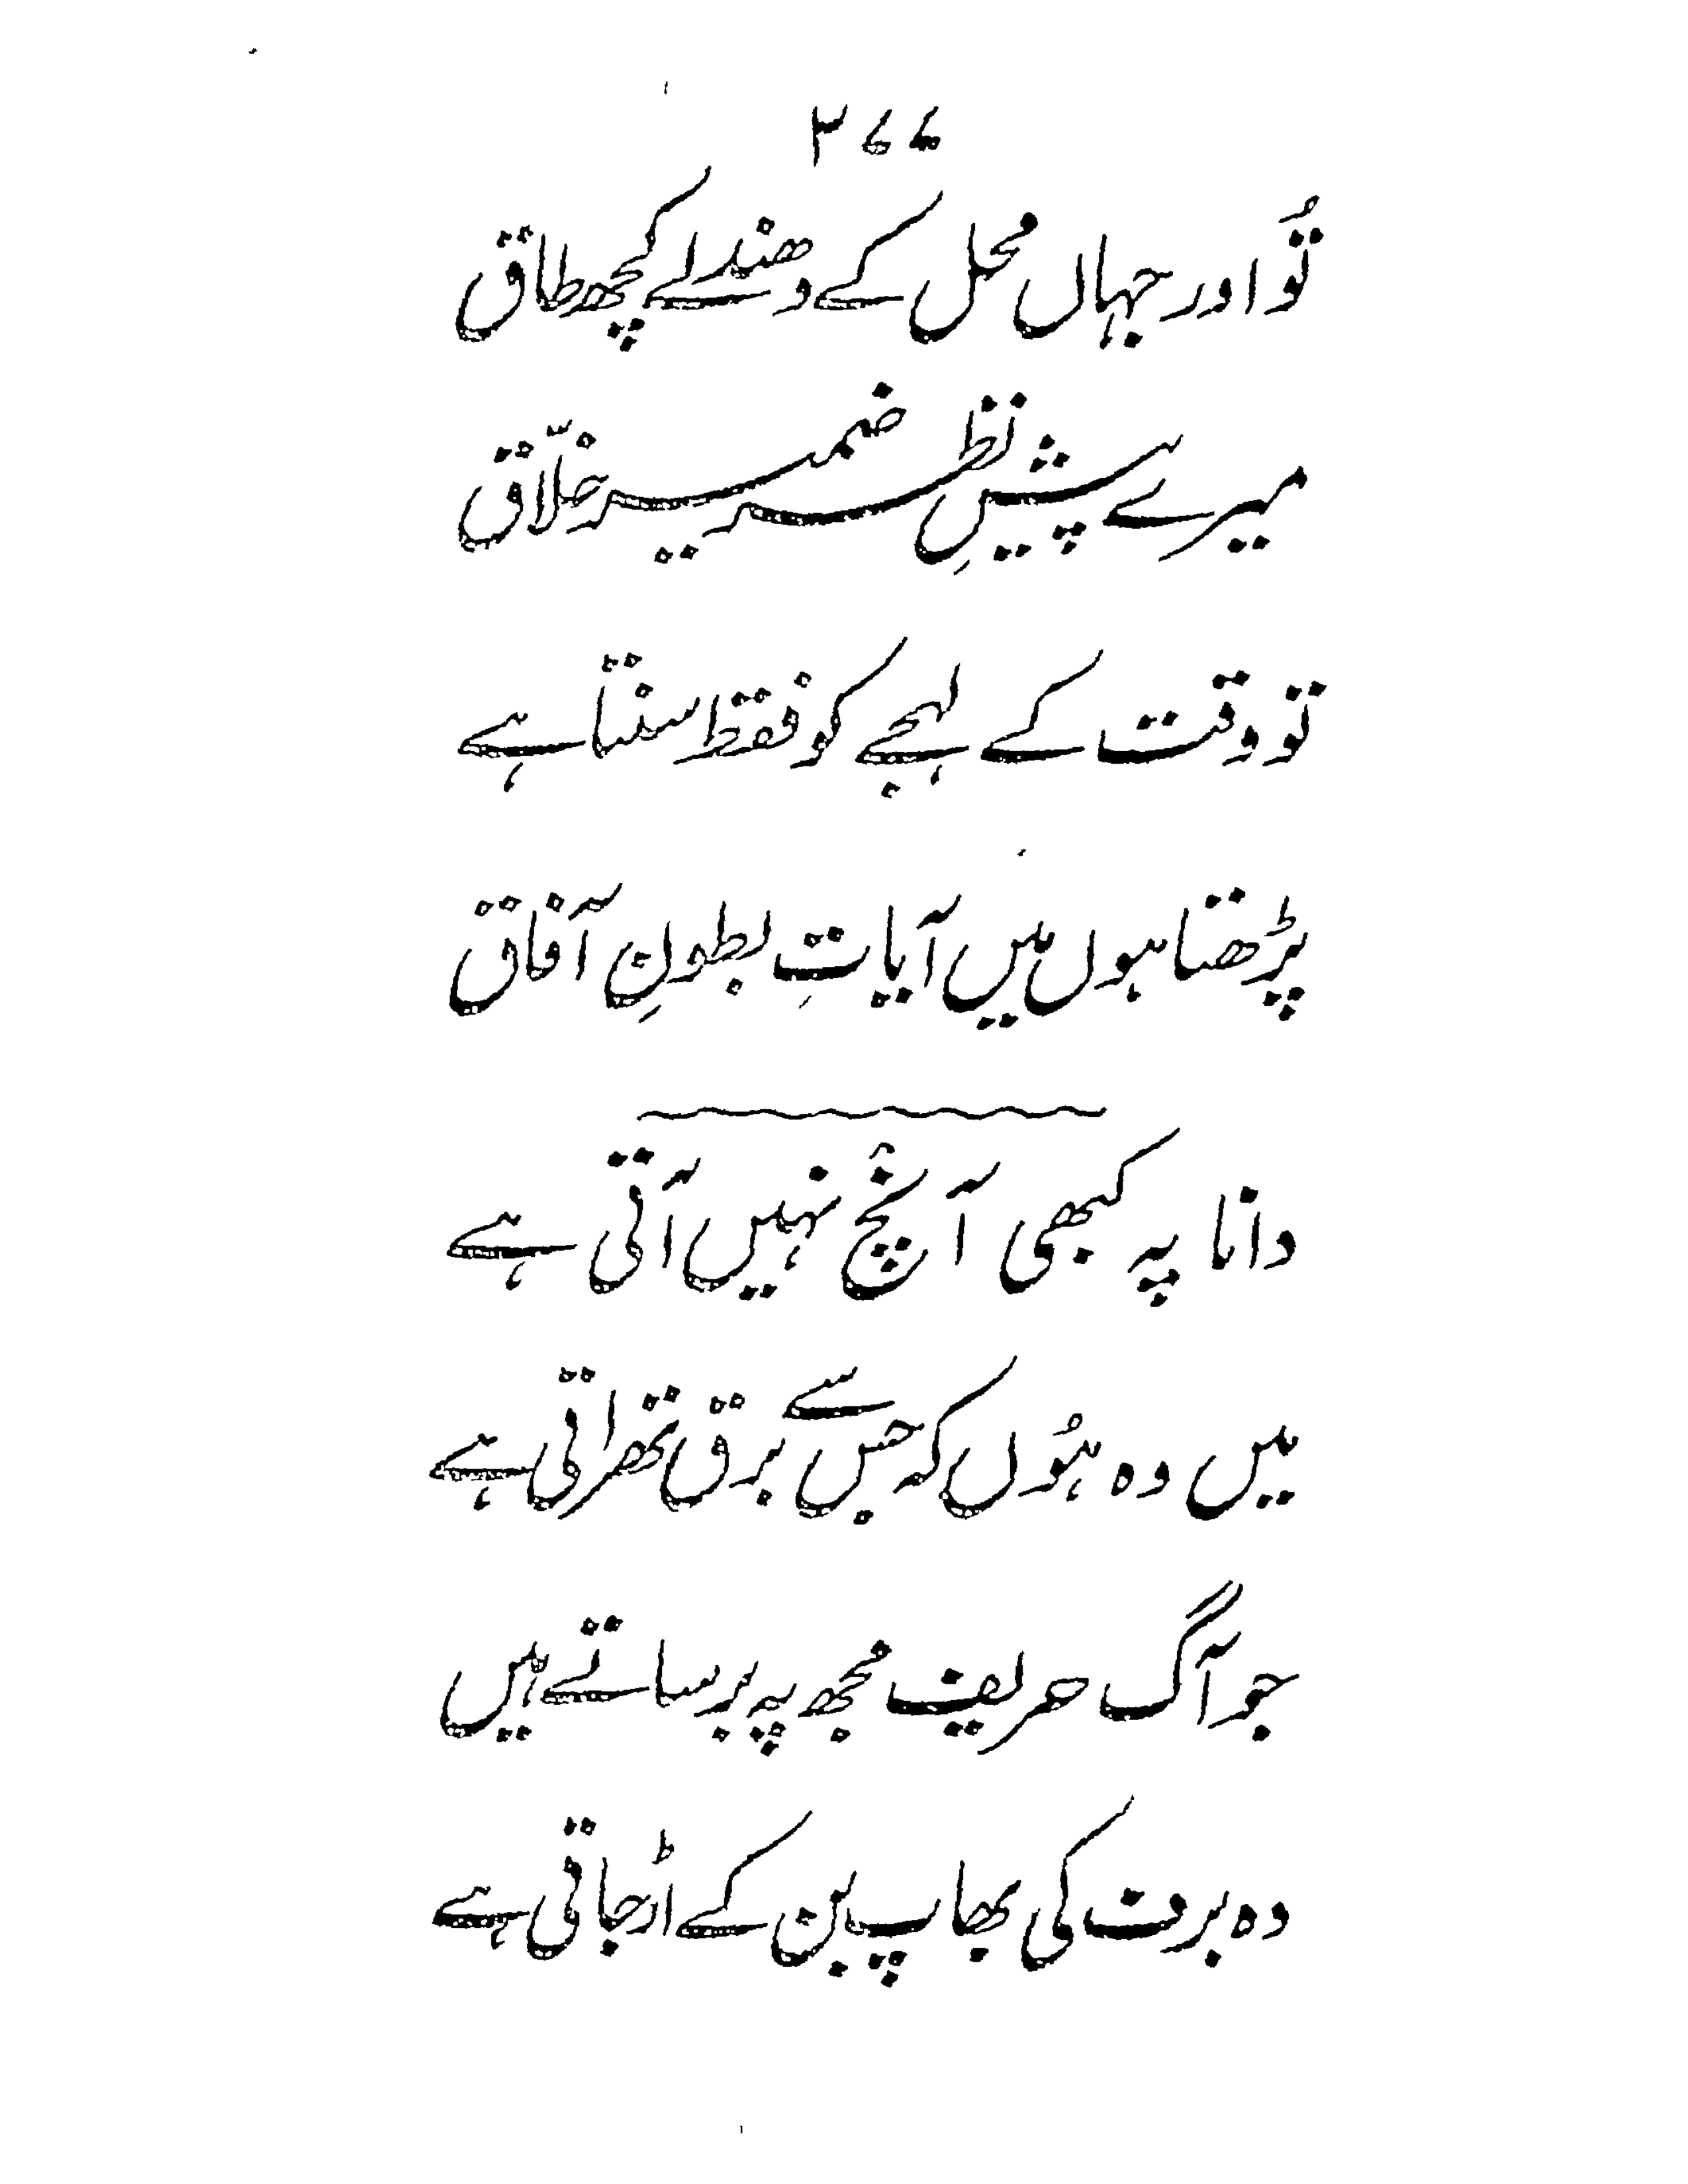 ۲۷۷
تُو اور جہاں محل کے دھندلے کچھ طاق
میرے پیشِ نظر ضمیر خلّاق
تو وقت کے لہجے کو فقط سنتا ہے
پڑھتا ہوں میں آیاتِ بطونِ آفاق
دانا پہ کبھی آنچ نہیں آتی ہے
میں وہ ہُوں کہ جس سے برق تھراتی ہے
جو آگ حریف مجھ پہ برساتے ہیں
وہ برف کی بھاپ بن کے اڑ جاتی ہے